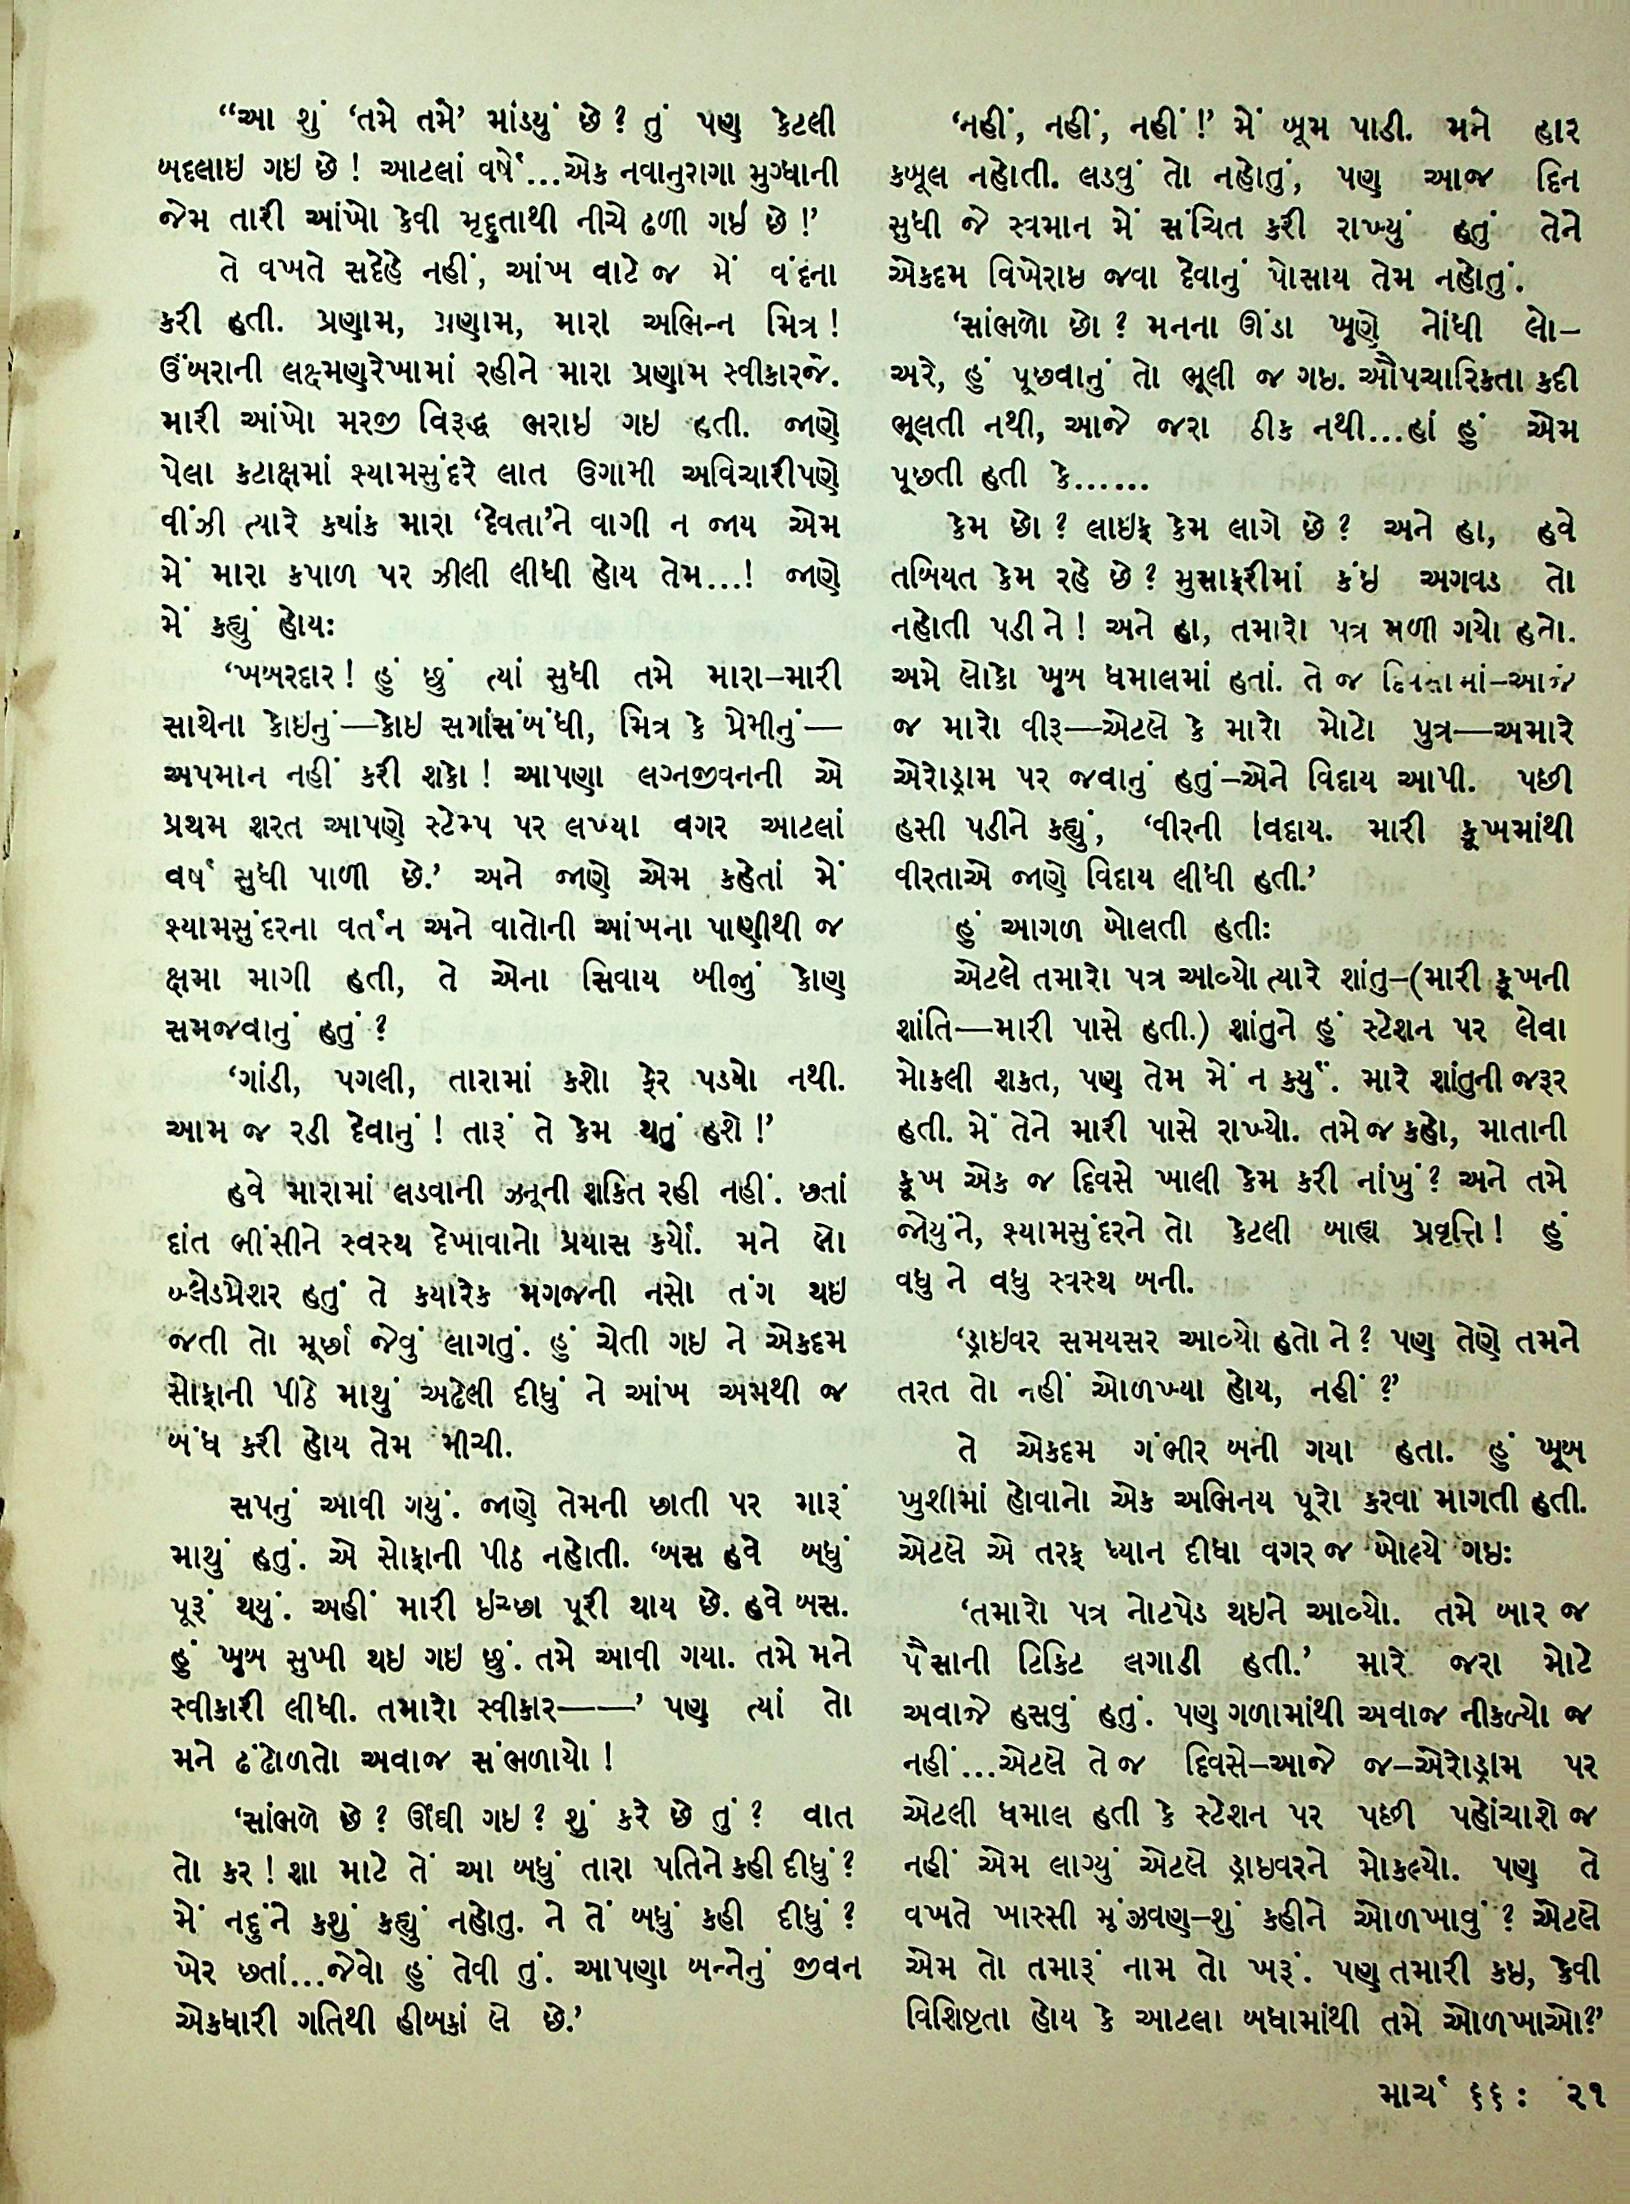 “આ શું ‘તમે તમે’ માંડયું છે? તું પણ કેટલી
બદલાઇ ગઇ છે! આટલાં વર્ષે...એક નવાનુરાગા મુગ્ધાની
જેમ તારી આંખો કેવી મૃદુતાથી નીચે ઢળી ગઈ છે!’
તે વખતે સદેહે નહીં, આંખ વાટે જ મેં વંદના
કરી હતી. પ્રણામ, પ્રણામ, મારા અભિન્ન મિત્ર!
ઉંબરાની લક્ષ્મણરેખામાં રહીને મારા પ્રણામ સ્વીકારજે.
મારી આંખો મરજી વિરૂદ્ધ ભરાઇ ગઇ હતી. જાણે
પેલા કટાક્ષમાં શ્યામસુંદરે લાત ઉગામી અવિચારીપણે
વીંઝી ત્યારે કયાંક મારા ‘દેવતા’ને વાગી ન જાય એમ
મેં મારા કપાળ પર ઝીલી લીધી હોય તેમ...! જાણે
મેં કહ્યું હોયઃ
‘ખબરદાર! હું છું ત્યાં સુધી તમે મારા–મારી
સાથેના કોઇનું—કોઇ સગાંસંબંધી, મિત્ર કે પ્રેમીનું—
અપમાન નહીં કરી શકો! આપણા લગ્નજીવનની એ
પ્રથમ શરત આપણે સ્ટેમ્પ પર લખ્યા વગર આટલાં
વર્ષ સુધી પાળી છે.’ અને જાણે એમ કહેતાં મેં
શ્યામસુંદરના વર્તન અને વાતોની આંખના પાણીથી જ
ક્ષમા માગી હતી, તે એના સિવાય બીજું કોણ
સમજવાનું હતું?
‘ગાંડી, પગલી, તારામાં કશો ફેર પડયો નથી.
આમ જ રડી દેવાનું! તારૂં તે કેમ થતું હશે!’
હવે મારામાં લડવાની ઝનૂની શકિત રહી નહીં. છતાં
દાંત ભીંસીને સ્વસ્થ દેખાવાનો પ્રયાસ કર્યો. મને લો
બ્લેડપ્રેશર હતું તે કયારેક મગજની નસો તંગ થઇ
જતી તો મૂર્છા જેવું લાગતું. હું ચેતી ગઇ ને એકદમ
સોફાની પીઠે માથું અઢેલી દીધું ને આંખ અમથી જ
બંધ કરી હોય તેમ મીચી.
સપનું આવી ગયું. જાણે તેમની છાતી પર મારૂં
માથું હતું. એ સોફાની પીઠ નહોતી. ‘બસ હવે બધું
પૂરૂં થયું. અહીં મારી ઇચ્છા પૂરી થાય છે. હવે બસ.
હું ખૂબ સુખી થઇ ગઇ છું. તમે આવી ગયા. તમે મને
સ્વીકારી લીધી. તમારો સ્વીકાર——’ પણ ત્યાં તો
મને ઢંઢોળતો અવાજ સંભળાયો!
‘સાંભળે છે? ઊંઘી ગઇ? શું કરે છે તું? વાત
તો કર! શા માટે તેં આ બધું તારા પતિને કહી દીધું?
મેં નદુંને કશું કહ્યું નહોતુ. ને તેં બધું કહી દીધું?
ખેર છતાં...જેવો હું તેવી તું. આપણા બન્નેનું જીવન
એકધારી ગતિથી હીબકાં લે છે.’
‘નહીં, નહીં, નહીં!’ મેં બૂમ પાડી. મને હાર
કબૂલ નહોતી. લડવું તો નહોતું, પણ આજ દિન
સુધી જે સ્વમાન મેં સંચિત કરી રાખ્યું હતું તેને
એકદમ વિખેરાઇ જવા દેવાનું પોસાય તેમ નહોતું.
‘સાંભળો છો? મનના ઊંડા ખૂણે નોંધી લો–
અરે, હું પૂછવાનું તો ભૂલી જ ગઇ. ઔપચારિકતા કદી
ભૂલતી નથી, આજે જરા ઠીક નથી...હાં હું એમ
પૂછતી હતી કે......
કેમ છો? લાઇફ કેમ લાગે છે? અને હા, હવે
તબિયત કેમ રહે છે? મુસાફરીમાં કંઇ અગવડ તો
નહોતી પડી ને! અને હા, તમારો પત્ર મળી ગયો હતો.
અમે લોકો ખૂબ ધમાલમાં હતાં. તે જ દિવસમાં–આજે
જ મારો વીરૂ—એટલે કે મારો મોટો પુત્ર—અમારે
એરોડ્રામ પર જવાનું હતું–એને વિદાય આપી. પછી
હસી પડીને કહ્યું, ‘વીરની વિદાય. મારી કૂખમાંથી
વીરતાએ જાણે વિદાય લીધી હતી.’
હું આગળ બોલતી હતીઃ
એટલે તમારો પત્ર આવ્યો ત્યારે શાંતુ–(મારી કૂખની
શાંતિ—મારી પાસે હતી.) શાંતુને હું સ્ટેશન પર લેવા
મોકલી શકત, પણ તેમ મેં ન કર્યું. મારે શાંતુની જરૂર
હતી. મેં તેને મારી પાસે રાખ્યો. તમે જ કહો, માતાની
કૂખ એક જ દિવસે ખાલી કેમ કરી નાંખું? અને તમે
જોયુંને, શ્યામસુંદરને તો કેટલી બાહ્ય પ્રવૃત્તિ! હું
વધુ ને વધુ સ્વસ્થ બની.
‘ડ્રાઇવર સમયસર આવ્યો હતો ને? પણ તેણે તમને
તરત તો નહીં ઓળખ્યા હોય, નહીં?’
તે એકદમ ગંભીર બની ગયા હતા. હું ખૂબ
ખુશીમાં હોવાનો એક અભિનય પૂરો કરવા માગતી હતી.
એટલે એ તરફ ધ્યાન દીધા વગર જ બોલ્યે ગઇઃ
‘તમારો પત્ર નોટપેડ થઇને આવ્યો. તમે બાર જ
પૈસાની ટિકિટ લગાડી હતી.’ મારે જરા મોટે
અવાજે હસવું હતું. પણ ગળામાંથી અવાજ નીકળ્યો જ
નહીં...એટલે તે જ દિવસે–આજે જ–એરોડ્રામ પર
એટલી ધમાલ હતી કે સ્ટેશન પર પછી પહોંચાશે જ
નહીં એમ લાગ્યું એટલે ડ્રાઇવરને મોકલ્યો. પણ તે
વખતે ખાસ્સી મૂંઝવણ–શું કહીને ઓળખાવું? એટલે
એમ તો તમારૂં નામ તો ખરૂં. પણ તમારી કઇ, કેવી
વિશિષ્ટતા હોય કે આટલા બધામાંથી તમે ઓળખાઓ?’
માર્ચ ૬૬: ૨૧